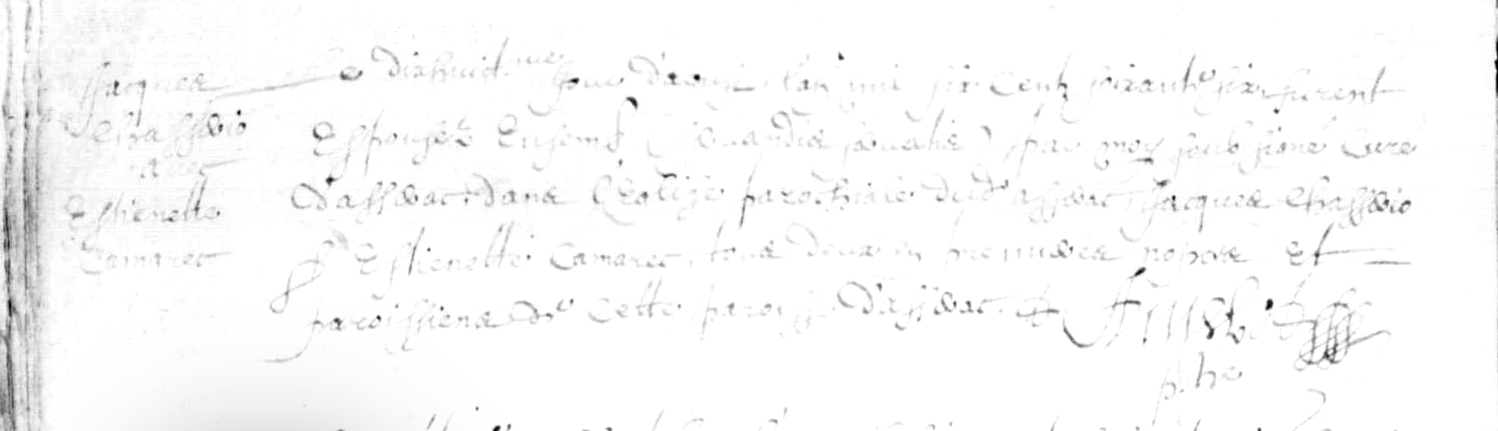 Jacques
Chasserio
avec
Estienette
Camarec
Le dixhuict.me jour d'aoust l'an mil six centz soixante six furent
Espousés Ensemble (servandis servatis) par moy soubsigné Curé
d'asserac dans l'Eglize parochiale dud asserac Jacques Chasserio
& Estienette Camarec, tous deux en premieres nopces Et
paroissiens de cette paroisse d'asserac.
pbre